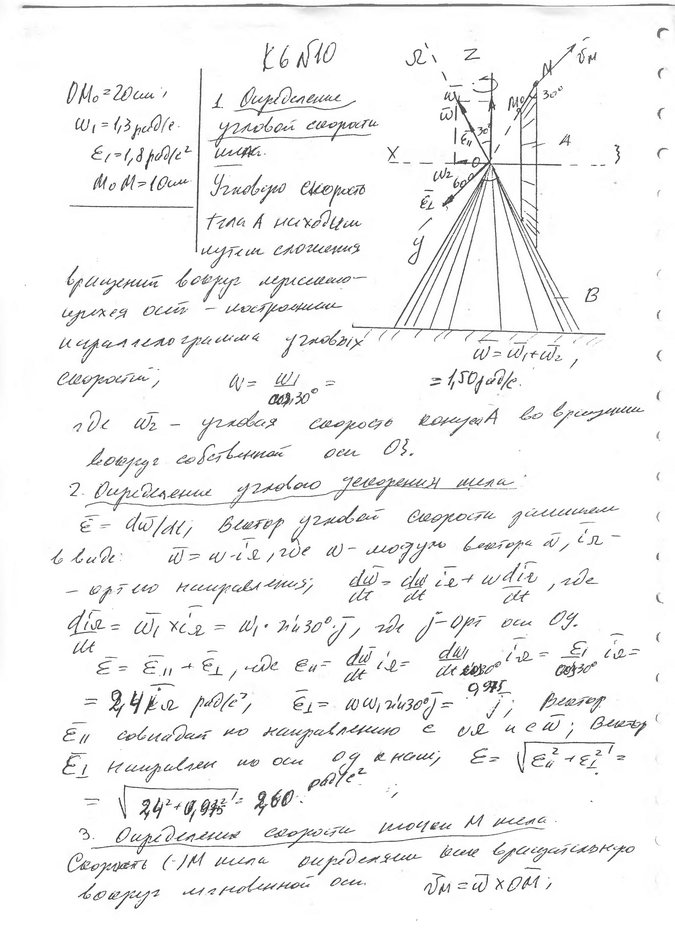 К6 №10
OM₀=20см,
ω₁=1,3рад/с.
ε₁=1,8рад/с²
M₀M=10см
1. Определение
угловой скорости
тела.
Угловую скорость
тела A находим
путем сложения
вращений вокруг пересекаю-
щихся осей – построением
параллелограмма угловых
скоростей;
Ω
Z
ω̄
ω̄₁
30°
ε̄₁₁
X
ω₂
O
60°
ε̄⊥
y
M₀
M
v̄M
30°
A
B
ω̄=ω̄₁+ω̄₂,
ω= ω₁/cos30° = =1,50рад/с.
где ω̄₂ – угловая скорость конуса A во вращении
вокруг собственной оси Oз.
2. Определение углового ускорения тела:
ε̄=dω̄/dt, Вектор угловой скорости запишем
в виде: ω̄=ω·īΩ, где ω- модуль вектора ω̄, īΩ -
- орт его направления; dω̄/dt = dω/dt īΩ + ω dīΩ/dt, где
dīΩ/dt = ω̄₁×īΩ = ω₁·sin30°·j̄, где j̄-орт оси Oy.
ε̄=ε̄₁₁+ε̄⊥, где ε₁₁= dω/dt īΩ= dω₁/dt cos30° īΩ= ε₁/cos30° īΩ=
= 2,4 īΩ рад/с², ε̄⊥=ωω₁sin30°j̄= 0,975 j̄; Вектор
ε̄₁₁ совпадает по направлению с oΩ и с ω̄; Вектор
ε̄⊥ направлен по оси oy к нам; ε= √ε₁₁²+ε⊥² =
= √2,4²+0,975² = 2,60 рад/с²,
3. Определение скорости точки M тела.
Скорость (·)M тела определяем как вращательную
вокруг мгновенной оси. v̄M=ω̄×OM̄;